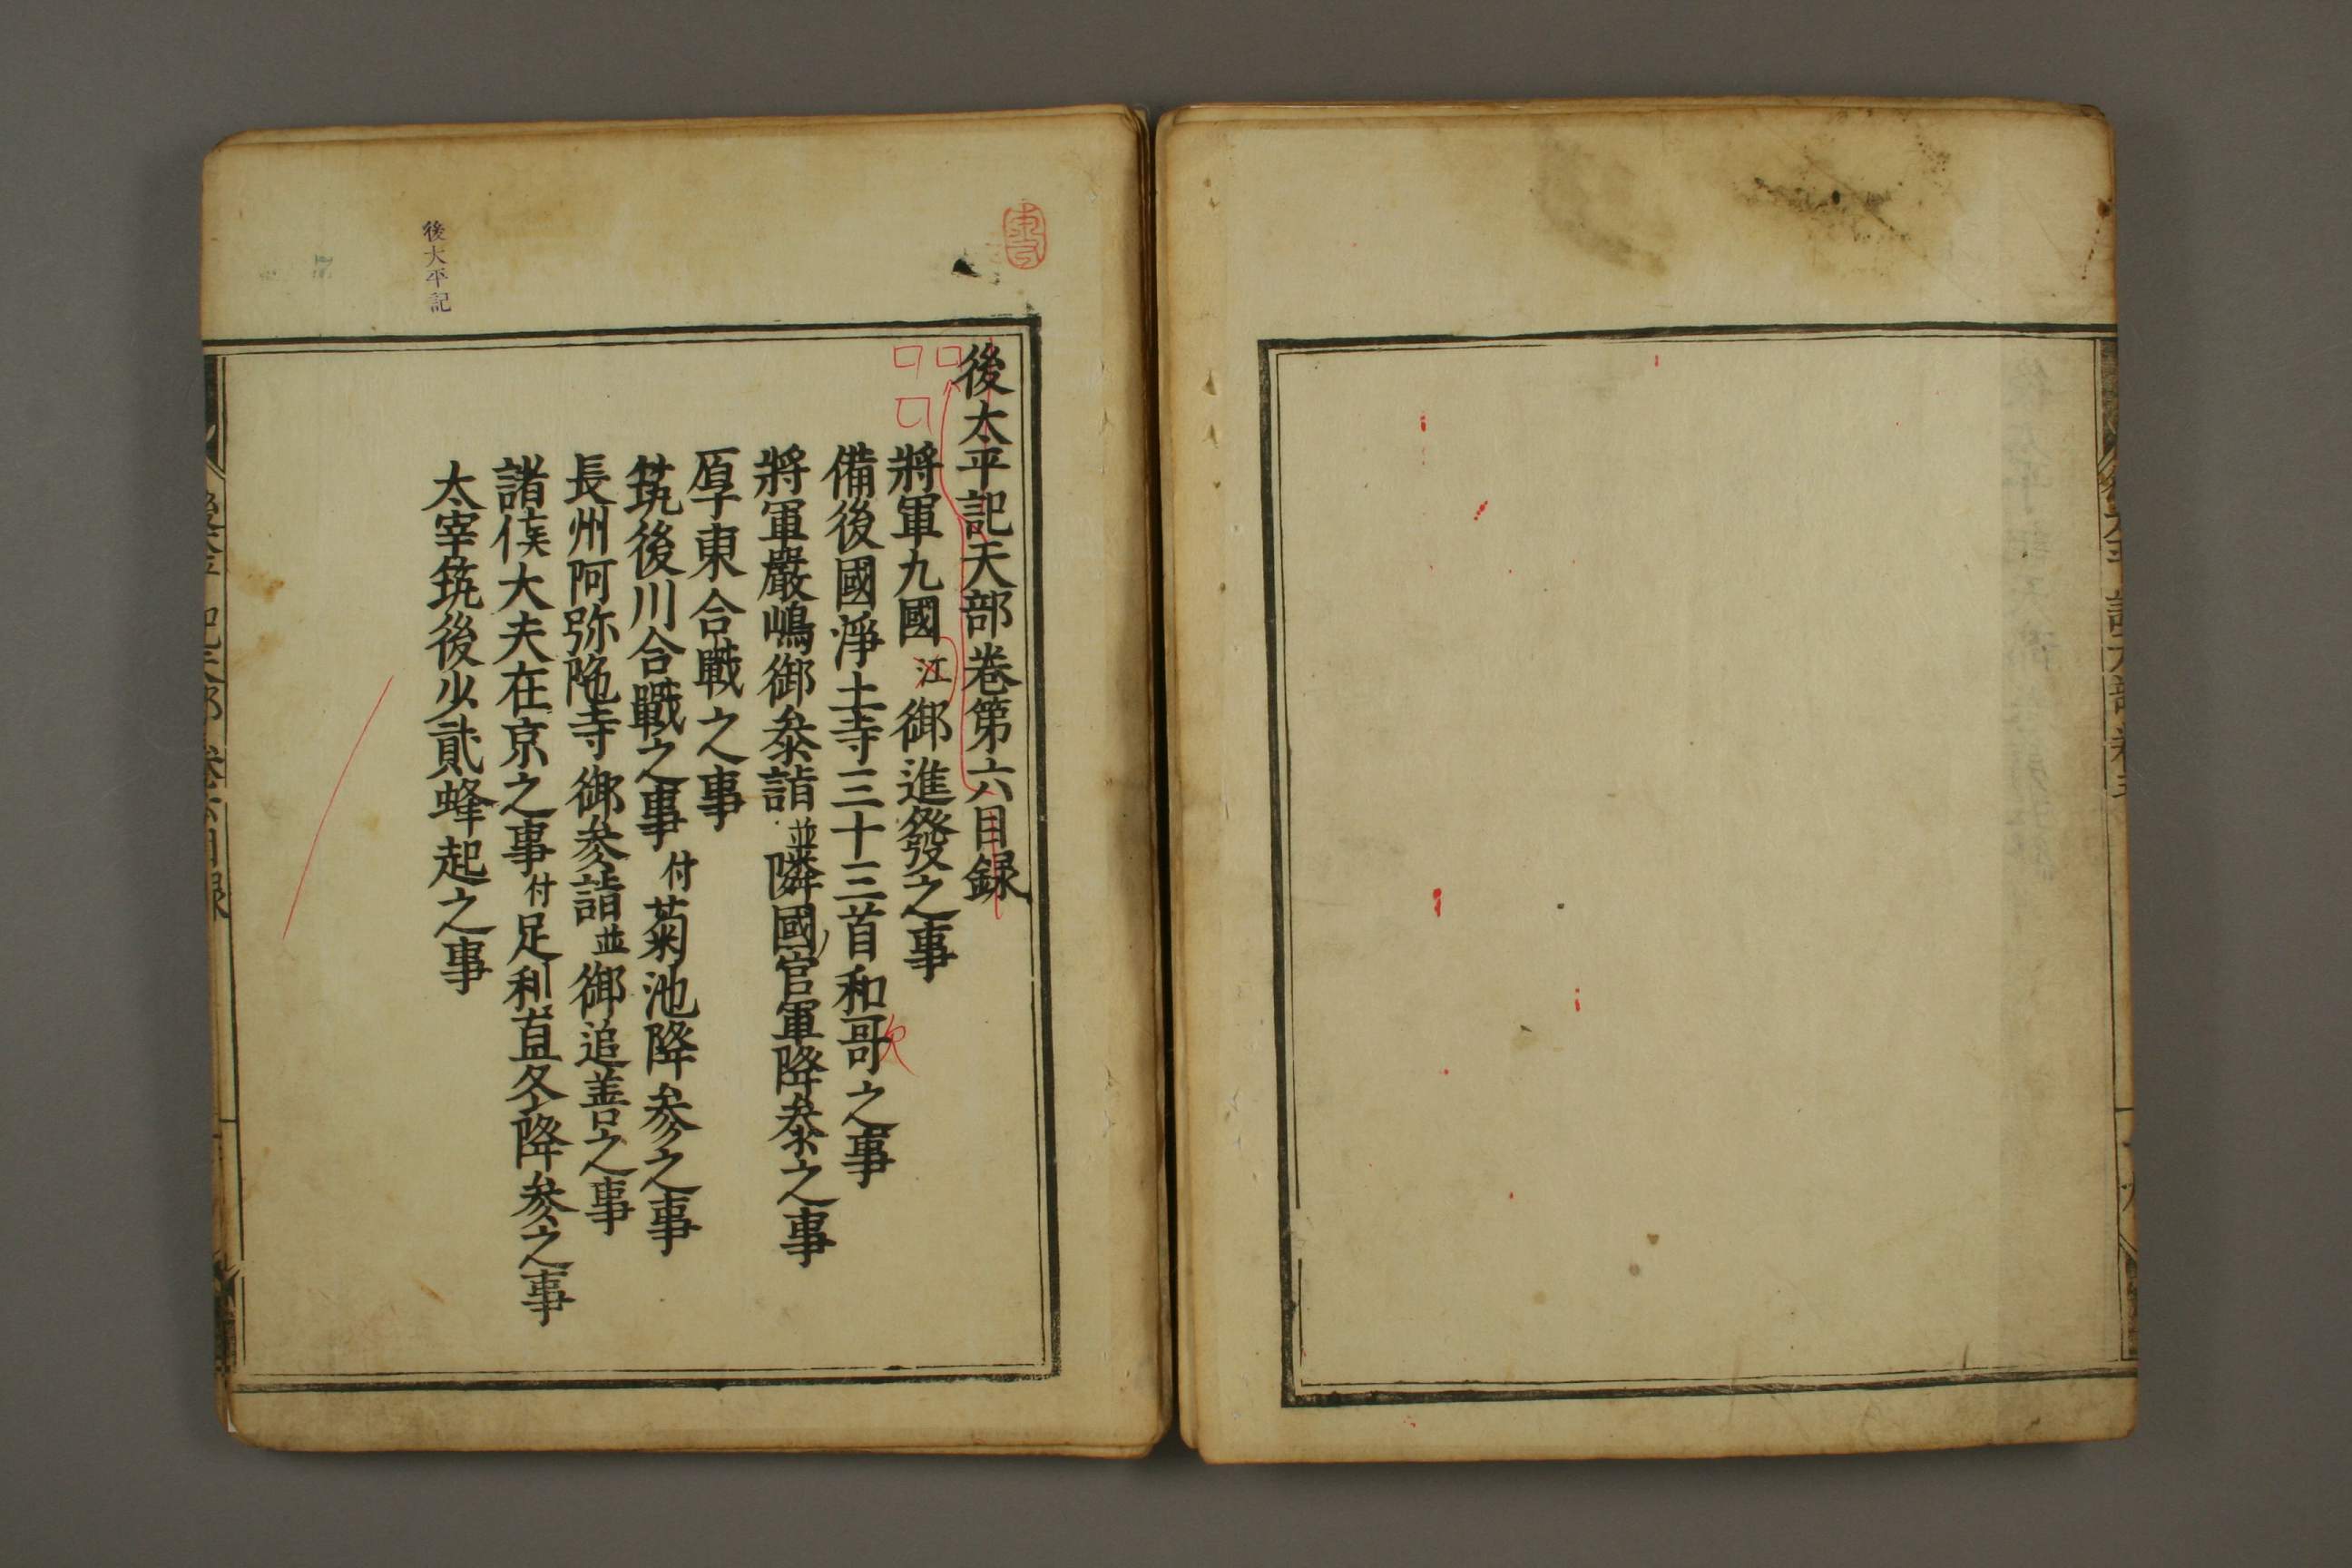 後太平記天部卷第六目録
將軍九國江御進發之事
備後國淨土寺三十三首和哥之事
將軍嚴嶋御參詣並隣國官軍降參之事
厚東合戰之事
筑後川合戰之事付菊池降参之事
長州阿弥陁寺御参詣並御追善之事
諸侯大夫在京之事付足利直冬降参之事
太宰筑後少貳蜂起之事
後太平記